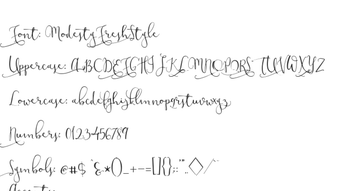 Font: ModestyFreshStyle
Uppercase: ABCDEFGHIJKLMNOPQRSTUVWXYZ
Lowercase: abcdefghijklmnopqrstuvwxyz
Numbers: 0123456789
Symbols: @#$ &*()_+-=[]{};:'",<>/